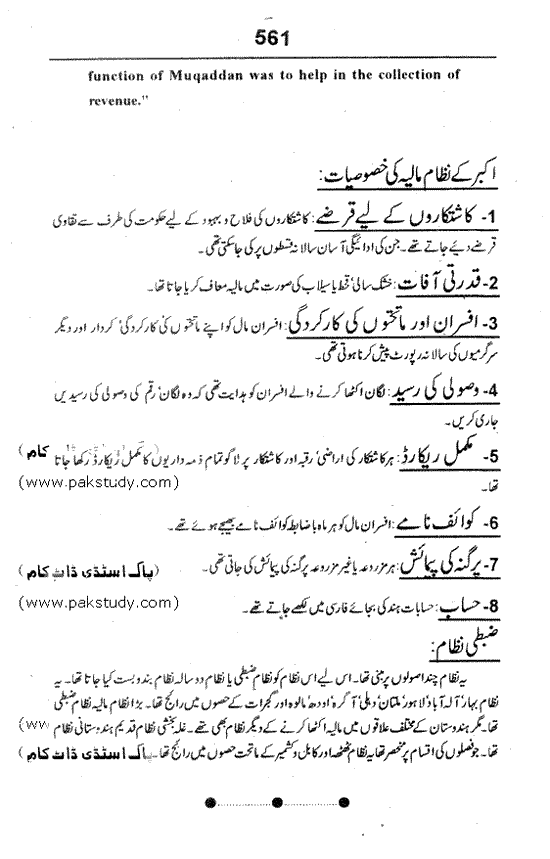 561
function of Muqaddan was to help in the collection of
revenue."
اکبر کے نظام مالیہ کی خصوصیات:
1- کاشتکاروں کے لیے قرضے: کاشتکاروں کی فلاح و بہبود کے لیے حکومت کی طرف سے تقاوی
قرضے دیئے جاتے تھے۔ جن کی ادائیگی آسان سالانہ قسطوں پر کی جا سکتی تھی۔
2- قدرتی آفات: خشک سالی' قحط یا سیلاب کی صورت میں مالیہ معاف کر دیا جاتا تھا۔
3- افسران اور ماتحتوں کی کارکردگی: افسران مال کو اپنے ماتحتوں کی کارکردگی' کردار اور دیگر
سرگرمیوں کی سالانہ رپورٹ پیش کرنا ہوتی تھی۔
4- وصولی کی رسید: لگان اکٹھا کرنے والے افسران کو ہدایت تھی کہ وہ لگان' رقم کی وصولی کی رسیدیں
جاری کریں۔
5- مکمل ریکارڈ: ہر کاشتکار کی اراضی' رقبہ اور کاشتکار پر لاگو تمام ذمہ داریوں کا مکمل ریکارڈ رکھا جاتا کام)
تھا۔ (www.pakstudy.com)
6- کوائف نامے: افسران مال کو ہر ماہ باضابطہ کوائف نامے بھیجے ہوئے تھے۔
7- پرگنہ کی پیمائش: ہر مزروعہ یا غیر مزروعہ پرگنہ کی پیمائش کی جاتی تھی۔ (پاک اسٹڈی ڈاٹ کام)
8- حساب: حسابات ہند کی بجائے فارسی میں لکھے جاتے تھے۔ (www.pakstudy.com)
ضبطی نظام:
یہ نظام چند اصولوں پر مبنی تھا۔ اس لیے اس نظام کو نظام ضبطی یا نظام دہ سالہ نظام بندوبست کہا جاتا تھا۔ یہ
نظام بہار' آلہ آباد' لاہور' ملتان' دہلی' آگرہ' اودھ' مالوہ اور گجرات کے حصوں میں رائج تھا۔ بڑا نظام مالیہ نظام ضبطی
تھا۔ مگر ہندوستان کے مختلف علاقوں میں مالیہ اکٹھا کرنے کے دیگر نظام بھی تھے۔ غلہ بخشی نظام قدیم ہندوستانی نظام (ww
تھا۔ جو فصلوں کی اقسام پر منحصر تھا یہ نظام ٹھٹھہ اور کابل و کشمیر کے ماتحت حصوں میں رائج تھا۔ پاک اسٹڈی ڈاٹ کام)